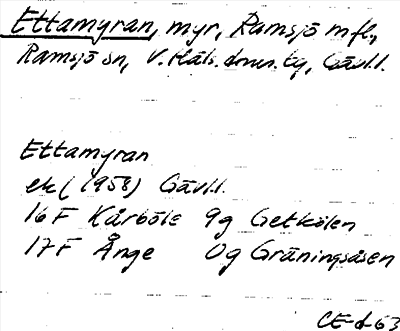 Ettamyran, myr, Ramsjö mfl.,
Ramsjö sn, V. Häls. domn. tg, Gävl.l.
Ettamyran
ek (1958) Gävl.l.
16F Kårböle 9g Getkölen
17F Ånge 0g Gräningsåsen
CE-d-63